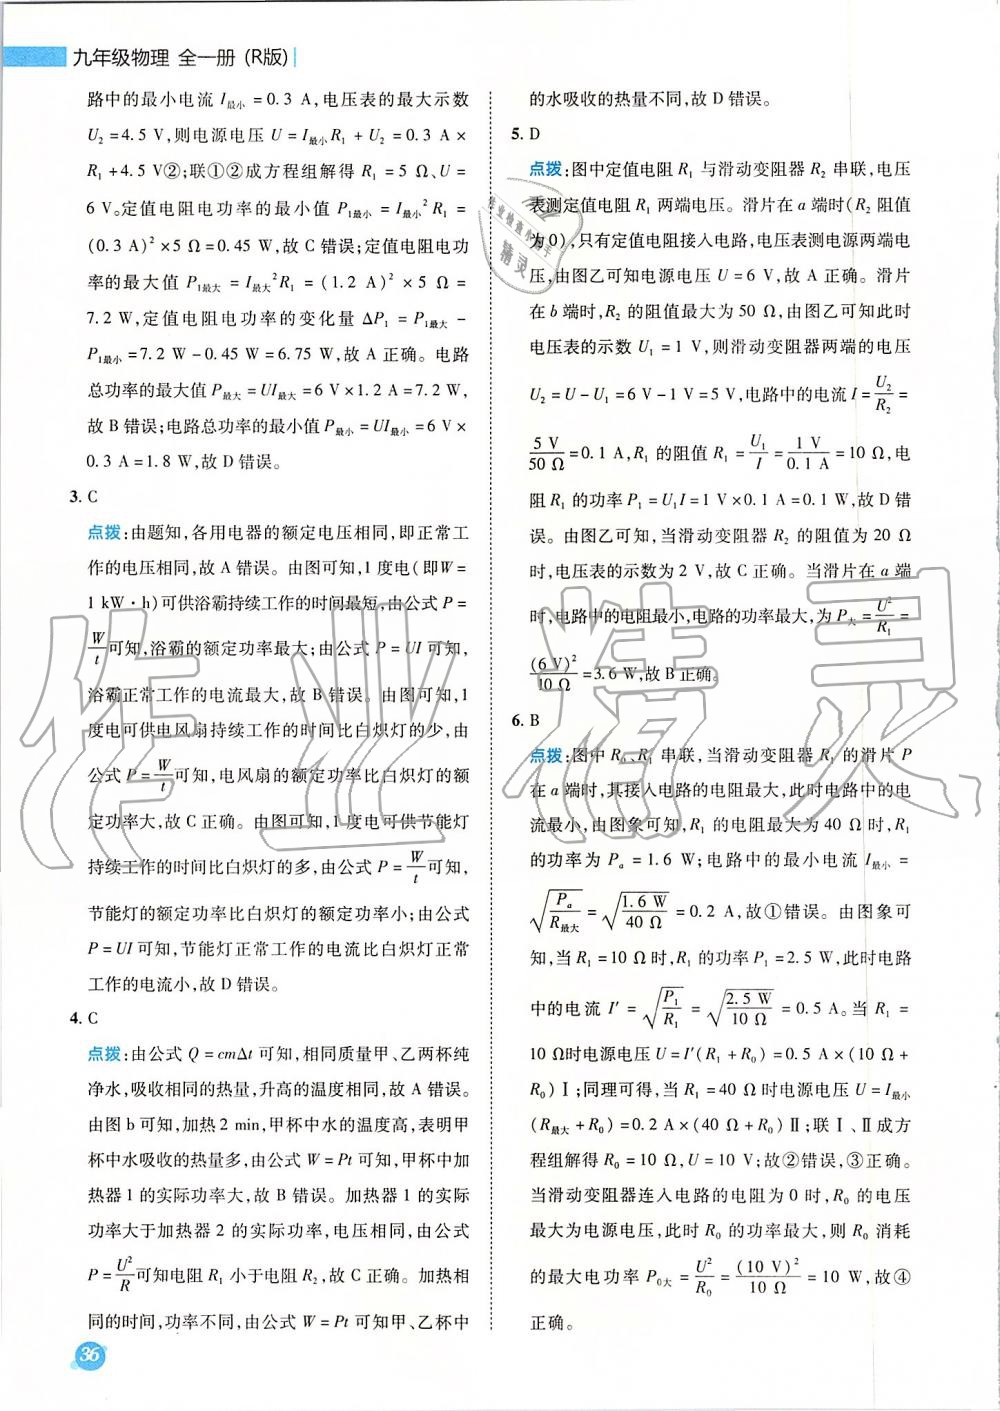 九年级物理 全一册 (R版)
路中的最小电流 I最小 = 0.3 A,电压表的最大示数
U₂ = 4.5 V,则电源电压 U = I最小R₁ + U₂ = 0.3 A ×
R₁ + 4.5 V②;联①②成方程组解得 R₁ = 5 Ω、U =
6 V。定值电阻电功率的最小值 P₁最小 = I最小²R₁ =
(0.3 A)² × 5 Ω = 0.45 W,故 C 错误;定值电阻电功
率的最大值 P₁最大 = I最大²R₁ = (1.2 A)² × 5 Ω =
7.2 W,定值电阻电功率的变化量 ΔP₁ = P₁最大 -
P₁最小 = 7.2 W - 0.45 W = 6.75 W,故 A 正确。电路
总功率的最大值 P最大 = UI最大 = 6 V × 1.2 A = 7.2 W,
故 B 错误;电路总功率的最小值 P最小 = UI最小 = 6 V ×
0.3 A = 1.8 W,故 D 错误。
3. C
点拨:由题知,各用电器的额定电压相同,即正常工
作的电压相同,故 A 错误。由图可知,1 度电(即W =
1 kW·h)可供浴霸持续工作的时间最短,由公式 P =
W/t 可知,浴霸的额定功率最大;由公式 P = UI 可知,
浴霸正常工作的电流最大,故 B 错误。由图可知,1
度电可供电风扇持续工作的时间比白炽灯的少,由
公式 P = W/t 可知,电风扇的额定功率比白炽灯的额
定功率大,故 C 正确。由图可知,1 度电可供节能灯
持续工作的时间比白炽灯的多,由公式 P = W/t 可知,
节能灯的额定功率比白炽灯的额定功率小;由公式
P = UI 可知,节能灯正常工作的电流比白炽灯正常
工作的电流小,故 D 错误。
4. C
点拨:由公式 Q = cmΔt 可知,相同质量甲、乙两杯纯
净水,吸收相同的热量,升高的温度相同,故 A 错误。
由图 b 可知,加热 2 min,甲杯中水的温度高,表明甲
杯中水吸收的热量多,由公式 W = Pt 可知,甲杯中加
热器 1 的实际功率大,故 B 错误。加热器 1 的实际
功率大于加热器 2 的实际功率,电压相同,由公式
P = U²/R 可知电阻 R₁ 小于电阻 R₂,故 C 正确。加热相
同的时间,功率不同,由公式 W = Pt 可知甲、乙杯中
的水吸收的热量不同,故 D 错误。
5. D
点拨:图中定值电阻 R₁ 与滑动变阻器 R₂ 串联,电压
表测定值电阻 R₁ 两端电压。滑片在 a 端时(R₂ 阻值
为 0),只有定值电阻接入电路,电压表测电源两端电
压,由图乙可知电源电压 U = 6 V,故 A 正确。滑片
在 b 端时,R₂ 的阻值最大为 50 Ω,由图乙可知此时
电压表的示数 U₁ = 1 V,则滑动变阻器两端的电压
U₂ = U - U₁ = 6 V - 1 V = 5 V,电路中的电流 I = U₂/R₂ =
5 V/50 Ω = 0.1 A,R₁ 的阻值 R₁ = U₁/I = 1 V/0.1 A = 10 Ω,电
阻 R₁ 的功率 P₁ = U₁I = 1 V × 0.1 A = 0.1 W,故 D 错
误。由图乙可知,当滑动变阻器 R₂ 的阻值为 20 Ω
时,电压表的示数为 2 V,故 C 正确。当滑片在 a 端
时,电路中的电阻最小,电路的功率最大,为 P大 = U²/R₁ =
(6 V)²/10 Ω = 3.6 W,故 B 正确。
6. B
点拨:图中 R₀、R₁ 串联,当滑动变阻器 R₁ 的滑片 P
在 a 端时,其接入电路的电阻最大,此时电路中的电
流最小,由图象可知,R₁ 的电阻最大为 40 Ω 时,R₁
的功率为 Pa = 1.6 W;电路中的最小电流 I最小 =
√(Pa/R最大) = √(1.6 W/40 Ω) = 0.2 A,故①错误。由图象可
知,当 R₁ = 10 Ω 时,R₁ 的功率 P₁ = 2.5 W,此时电路
中的电流 I′ = √(P₁/R₁) = √(2.5 W/10 Ω) = 0.5 A。当 R₁ =
10 Ω时电源电压 U = I′(R₁ + R₀) = 0.5 A × (10 Ω +
R₀) Ⅰ;同理可得,当 R₁ = 40 Ω 时电源电压 U = I最小
(R最大 + R₀) = 0.2 A × (40 Ω + R₀) Ⅱ;联Ⅰ、Ⅱ成方
程组解得 R₀ = 10 Ω,U = 10 V;故②错误,③正确。
当滑动变阻器连入电路的电阻为 0 时,R₀ 的电压
最大为电源电压,此时 R₀ 的功率最大,则 R₀ 消耗
的最大电功率 P₀大 = U²/R₀ = (10 V)²/10 Ω = 10 W,故④
正确。
36
作业精灵